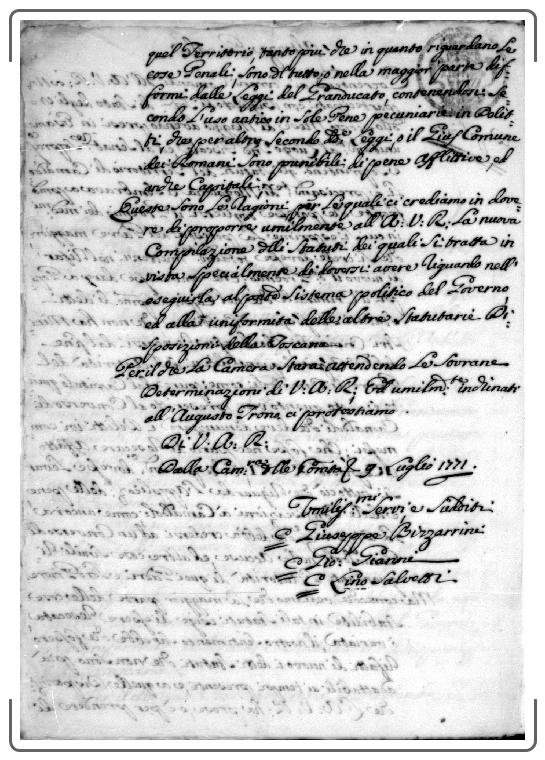 quel Territorio, tanto più che in quanto riguardano le
cose Penali sono di tutto, o nella maggior parte dif=
formi dalle Leggi del Granducato, contenendosi se=
condo l'uso antico in sole Pene pecuniarie in Delit=
ti, che per altro secondo d.e Leggi o il Gius Comune
dei Romani sono punibili di pene Afflittive, ed
anche Capitali.
Queste sono le Ragioni per le quali ci crediamo in dove=
re di proporre umilmente all'A: V: R: la nuova
Compilazione delli Statuti dei quali si tratta in
vista specialmente di doversi avere riguardo nell'
eseguirla al pnte Sistema politico del Governo,
ed alla uniformità delle altre Statutarie Di=
sposizioni della Toscana
Per il che la Camera starà attendendo le Sovrane
Determinazioni di V: A: R:, ed umilm.te inclinati
all'Augusto Trono ci protestiamo
Di V: A: R:
Dalla Cam.ra delle Comità li 9: Luglio 1771.
Umiliss.mi Servi e Sudditi
Giuseppe Bizzarrini
Gio: Giannini
Lino Salvetti